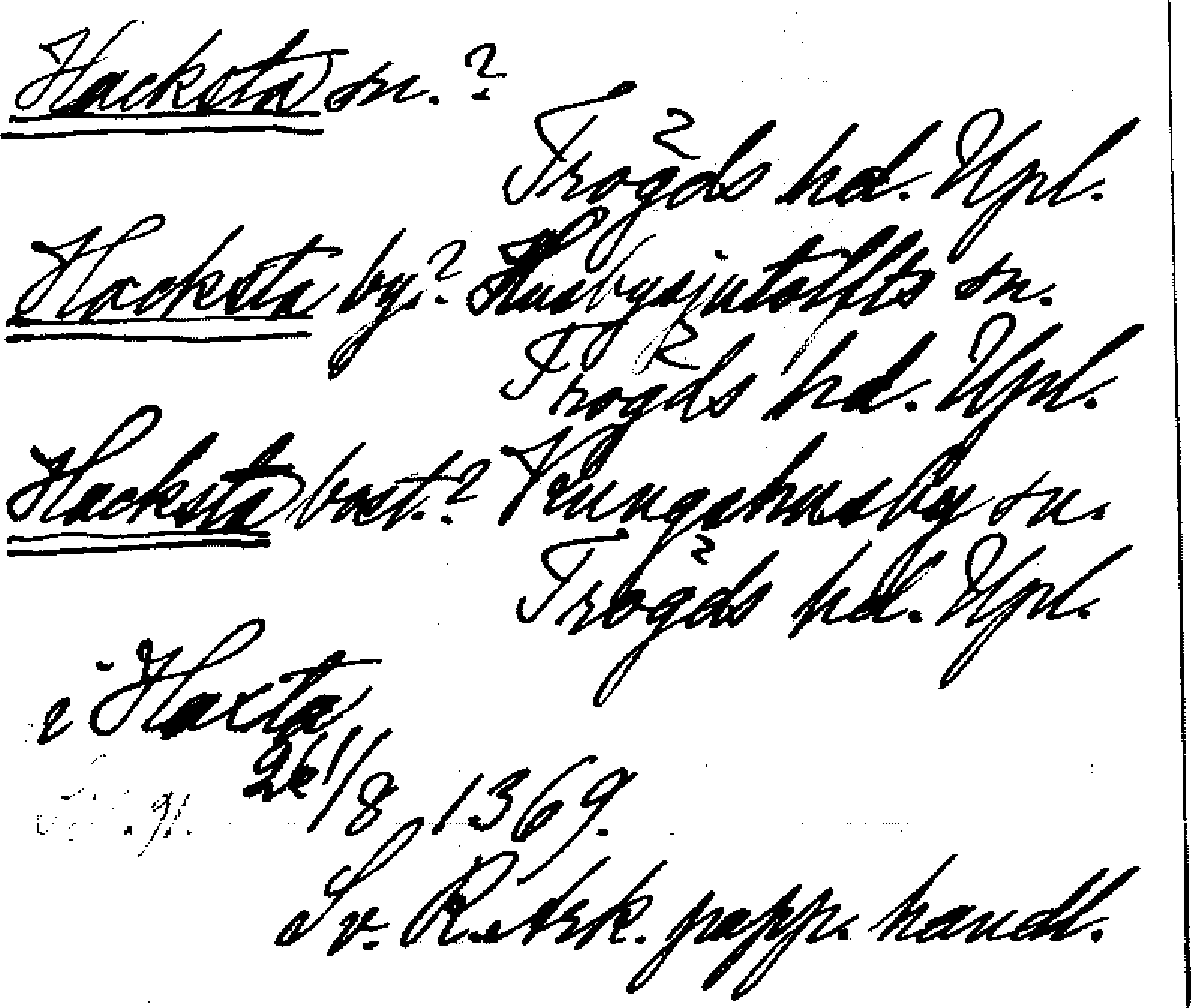 Hacksta sn.?
Trögds hd. Upl.
Hacksta by? Husbysjutolfts sn.
Trögds hd. Upl.
Hacksta bost.? Kungshusby sn.
Trögds hd. Upl.
i Haxta
26/8 1369.
91.
Sv. R. Ark. papp. handl.